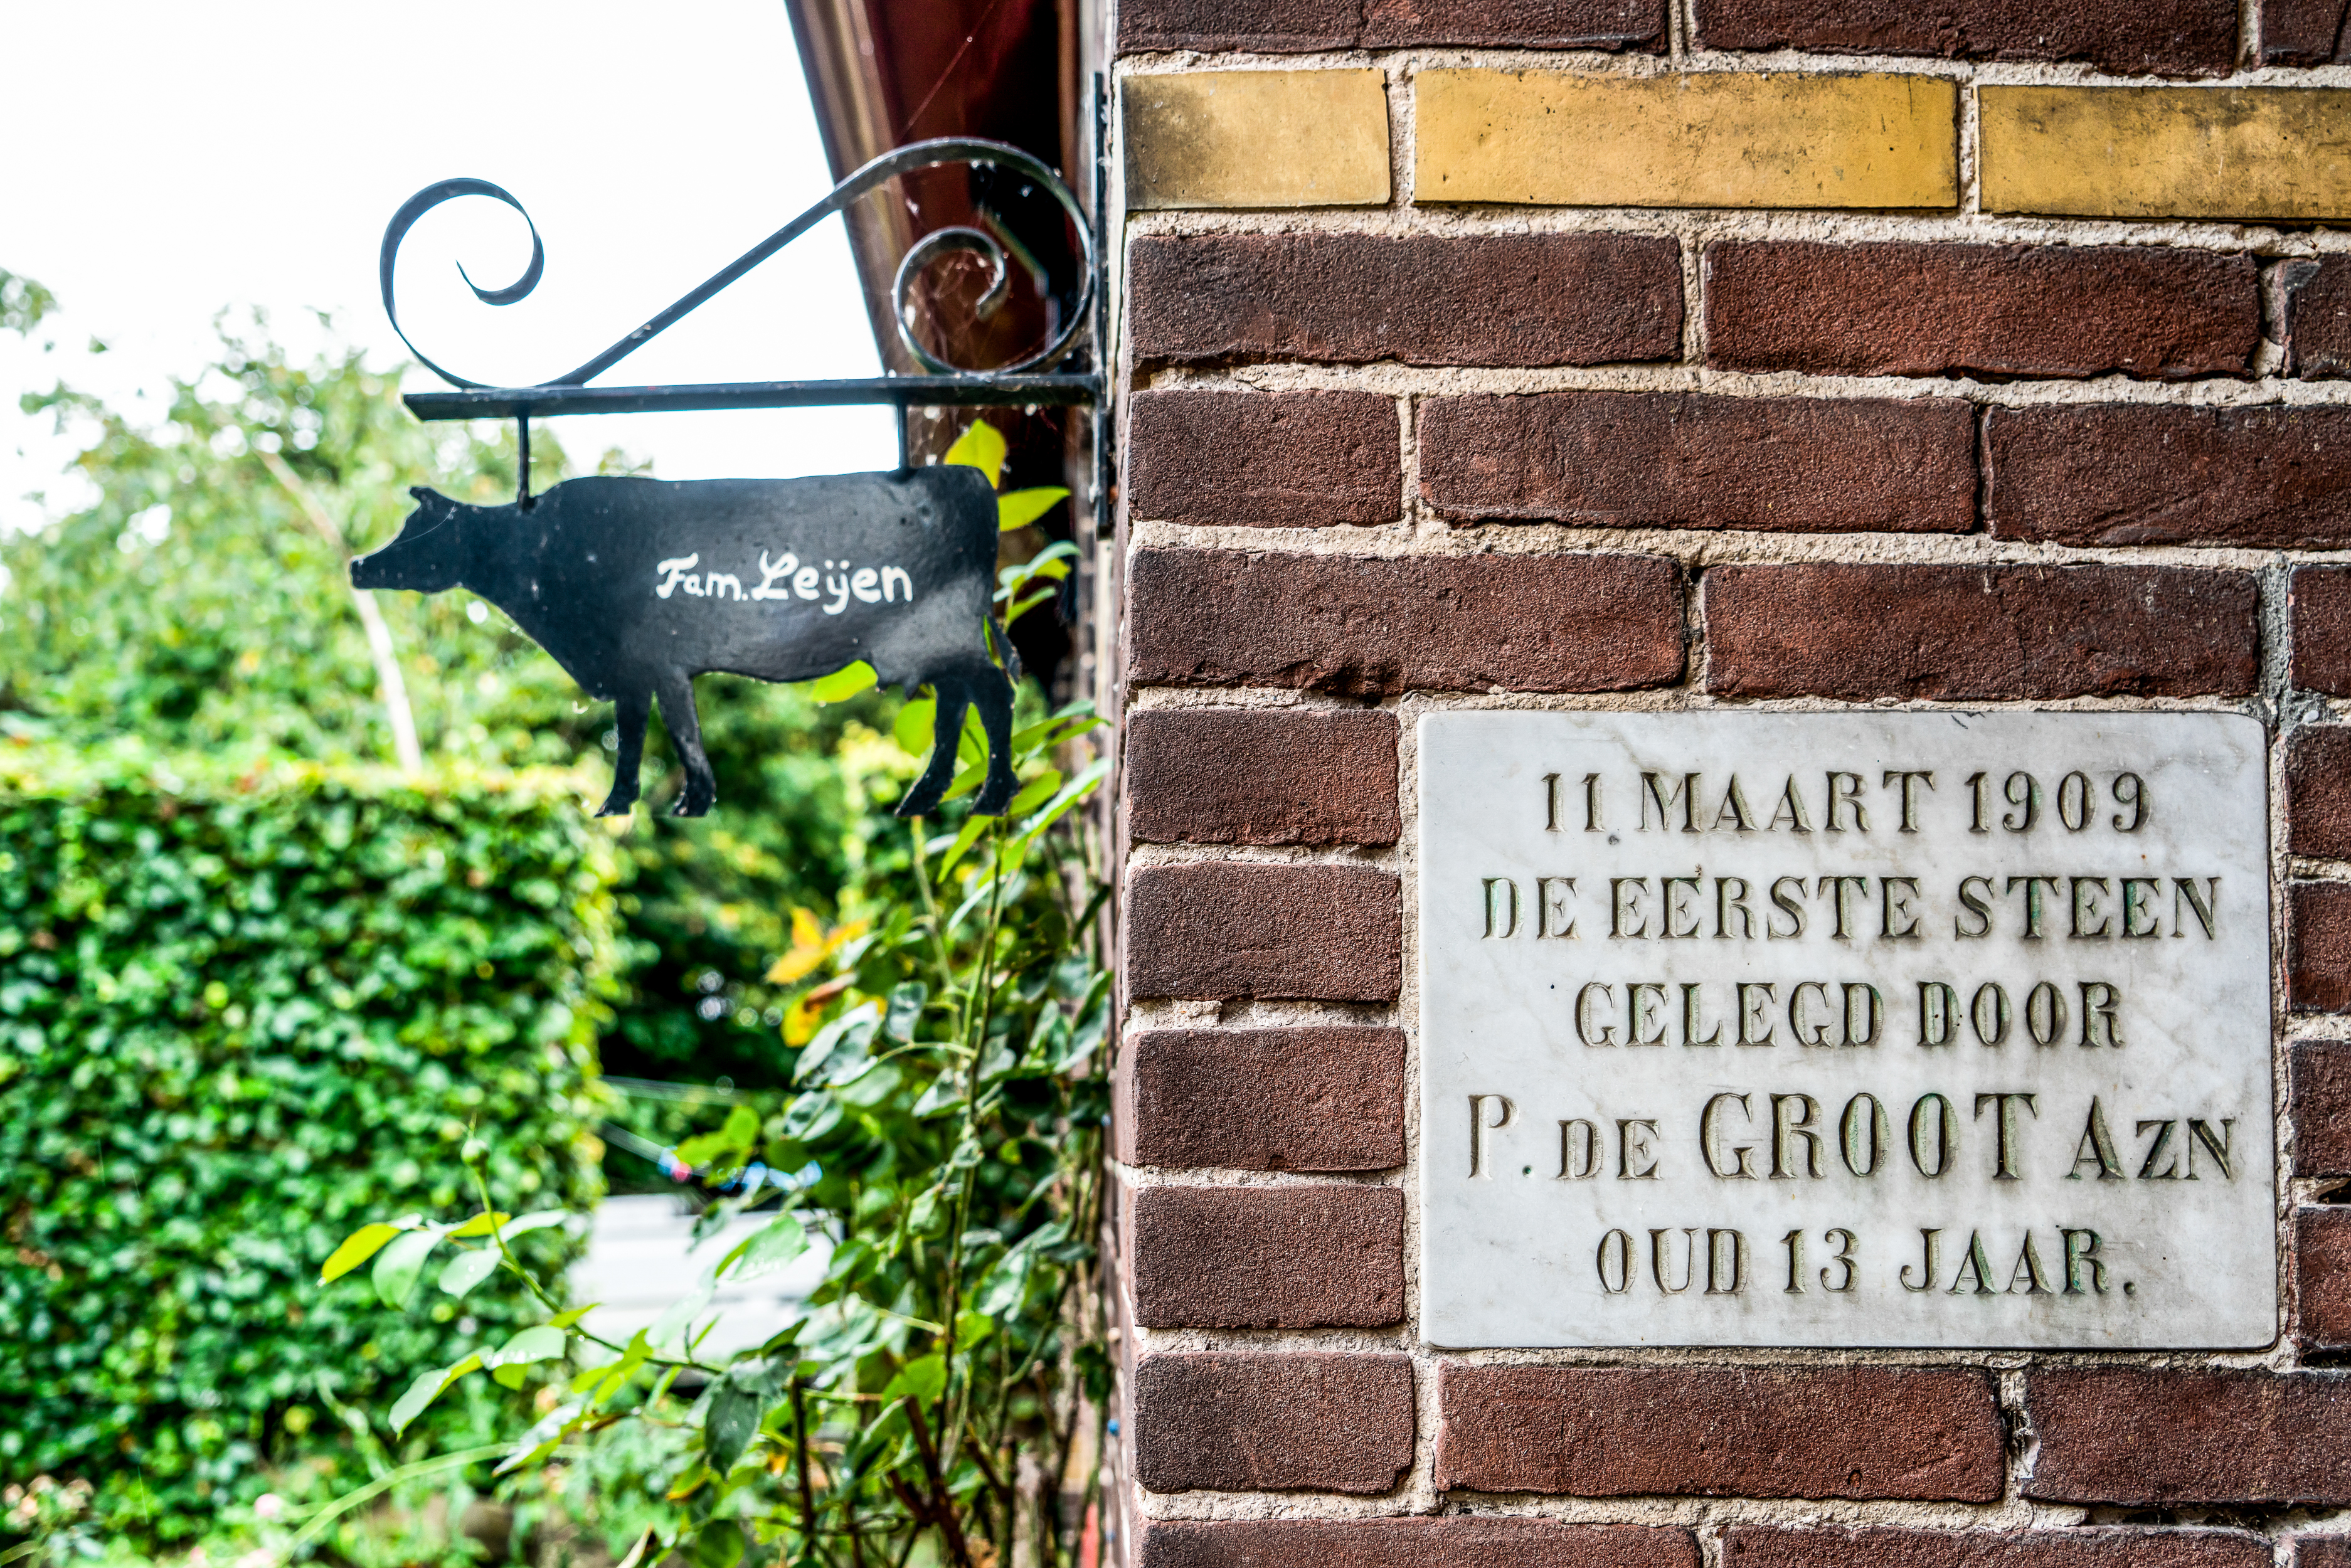 Fam. Leijen
11 MAART 1909
DE EERSTE STEEN
GELEGD DOOR
P. DE GROOT AZN
OUD 13 JAAR.